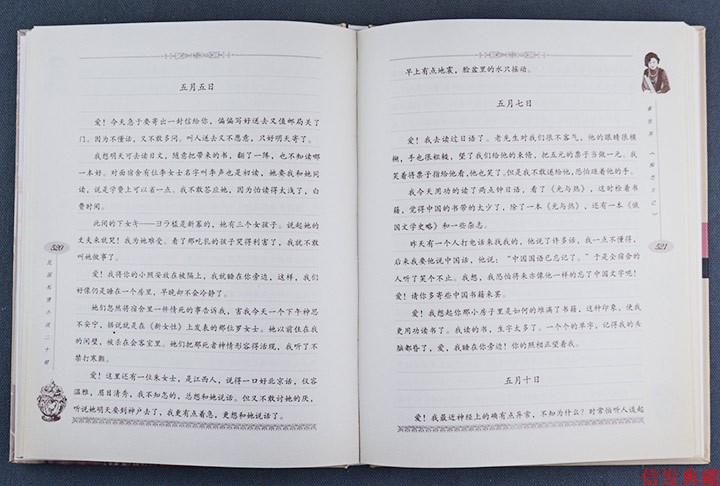 五月五日
爱！今天急于要寄出一封信给你，偏偏写好送去又值邮局关了
门。因为不懂话，又不敢多问。叫人送去又不愿意，只好明天寄了。
我想明天可去读日文，随意把带来的书，翻了一阵，也不知读哪
一本好。对面宿舍有位李女士名字叫李声也是初读，她要我和她同
读，说是学费上可以省一点。我不敢答应她，因为怕读得太浅了，白
费时间。
此间的下女キ——ヨラ樣是新寡的，她有三个女孩子。说起她的
丈夫来就哭！我为她难受。看了那吃乳的孩子哭得利害了，我就不敢
叫她做事了。
爱！我将你的小照安放在被隔上，我就睡在你旁边，这样，我们
好像仍是睡在一个房里，早晚却不会冷静了。
她们忽然将宿舍里一件情死的事告诉我，害我今天一个下午神思
不安宁，据说就是在《新女性》上发表的那位罗女士。她以前住在我
的间壁，被杀在会客室里。她们把那死者神情形容得活现，我听了不
禁打寒颤。
爱！这里还有一位朱女士，是江西人，说得一口好北京话，仪容
温雅，眉目清秀，我不知怎的，总想和她说话。但又不敢讨她的厌，
听说她明天要到神户去了，我更有点着急，更想和她说话了。
520
早上有点地震，脸盆里的水只摇动。
五月七日
爱！我去读过日语了。老先生对我们很不客气，他的眼睛很模
糊，手也很粗糙，望了我们给他的束脩，把五元的票子当做一元。我
笑着将票子指给他看，他也笑了。但是我不敢送给他，恐怕碰着他的手。
我今天用功的读了两点钟日语，看了《光与热》，这时检看书
籍，觉得中国的书带的太少了，除了一本《光与热》，还有一本《俄
国文学史略》和一些杂志。
昨天有一个人打电话来找我的，他说了许多话，我一点不懂得，
后来我要他说中国话，他说：“中国国语已忘记了。”于是全宿舍的
人听了笑个不止。我想，我恐怕得来亦像他一样的忘了中国文学呢！
爱！请你多寄些中国书籍来罢。
爱！我想起你那小房子里是如何的堆满了书籍，这种印象，使我
更用功读书了。我读的书，生字太多了。一个个的单字，记得我的头
脑都昏了，爱，我睡在你旁边！你的照相正望着我。
五月十日
爱！我最近神经上的确有点异常，不知为什么？时常怕听人谈起
521
信发典藏